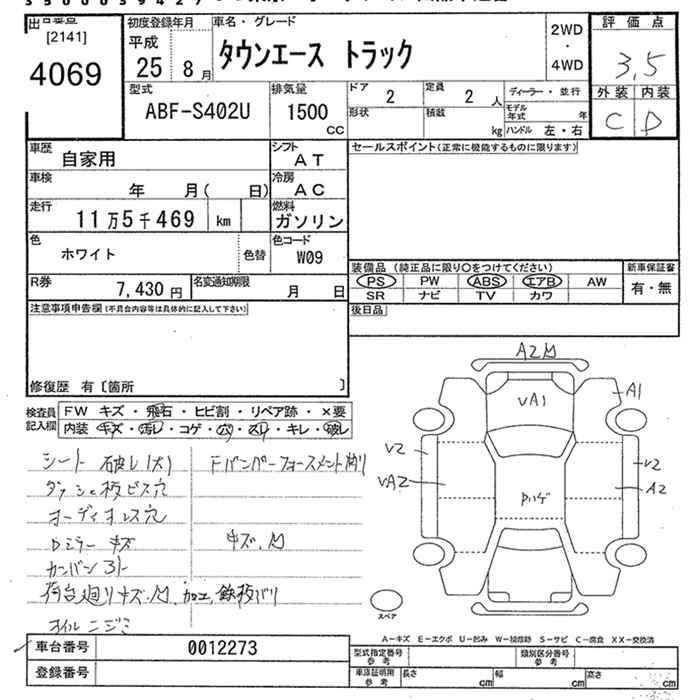 [2141]
4069
初度登録年月
平成
25 8月
車名・グレード
タウンエース トラック
2WD
・
4WD
評価点
3,5
外装 内装
C D
型式
ABF-S402U
排気量
1500
CC
ドア
2
定員
2人
形状
積載
kg
ディーラー・並行
モデル
年式 年
ハンドル 左・右
車歴
自家用
シフト
AT
車検
年 月( 日)
冷房
AC
走行
11万5千469 km
燃料
ガソリン
色
ホワイト
色替
色コード
W09
R券
7,430円
名変通知期限
月 日
セールスポイント(正常に機能するものに限ります)
装備品 (純正品に限り○をつけてください)
新車保証書
PS PW ABS エアB AW
SR ナビ TV カワ
有・無
後日品
注意事項申告欄(不具合内容等は具体的に記入して下さい)
修復歴 有〔箇所 〕
検査員
記入欄
FW キズ・飛石・ヒビ割・リペア跡・×要
内装 キズ・汚レ・コゲ・穴・スレ・キレ・破レ
シート 破レ(大)
ダッシュ板ビス穴
オーディオレス穴
Dミラー キズ
キズ、凹
カンバン
荷台廻りキズ、凹、加エ、鉄板バリ
オイルニジミ
A2凹
VA1
A1
V2
VA2
V2
A2
スペア
A-キズ E-エクボ U-凹み W-補修跡 S-サビ C-腐食 XX-交換済
車台番号
0012273
登録番号
型式指定番号
参考
類別区分番号
参考
車庫証明用
参考
長さ cm
幅 cm
高さ cm